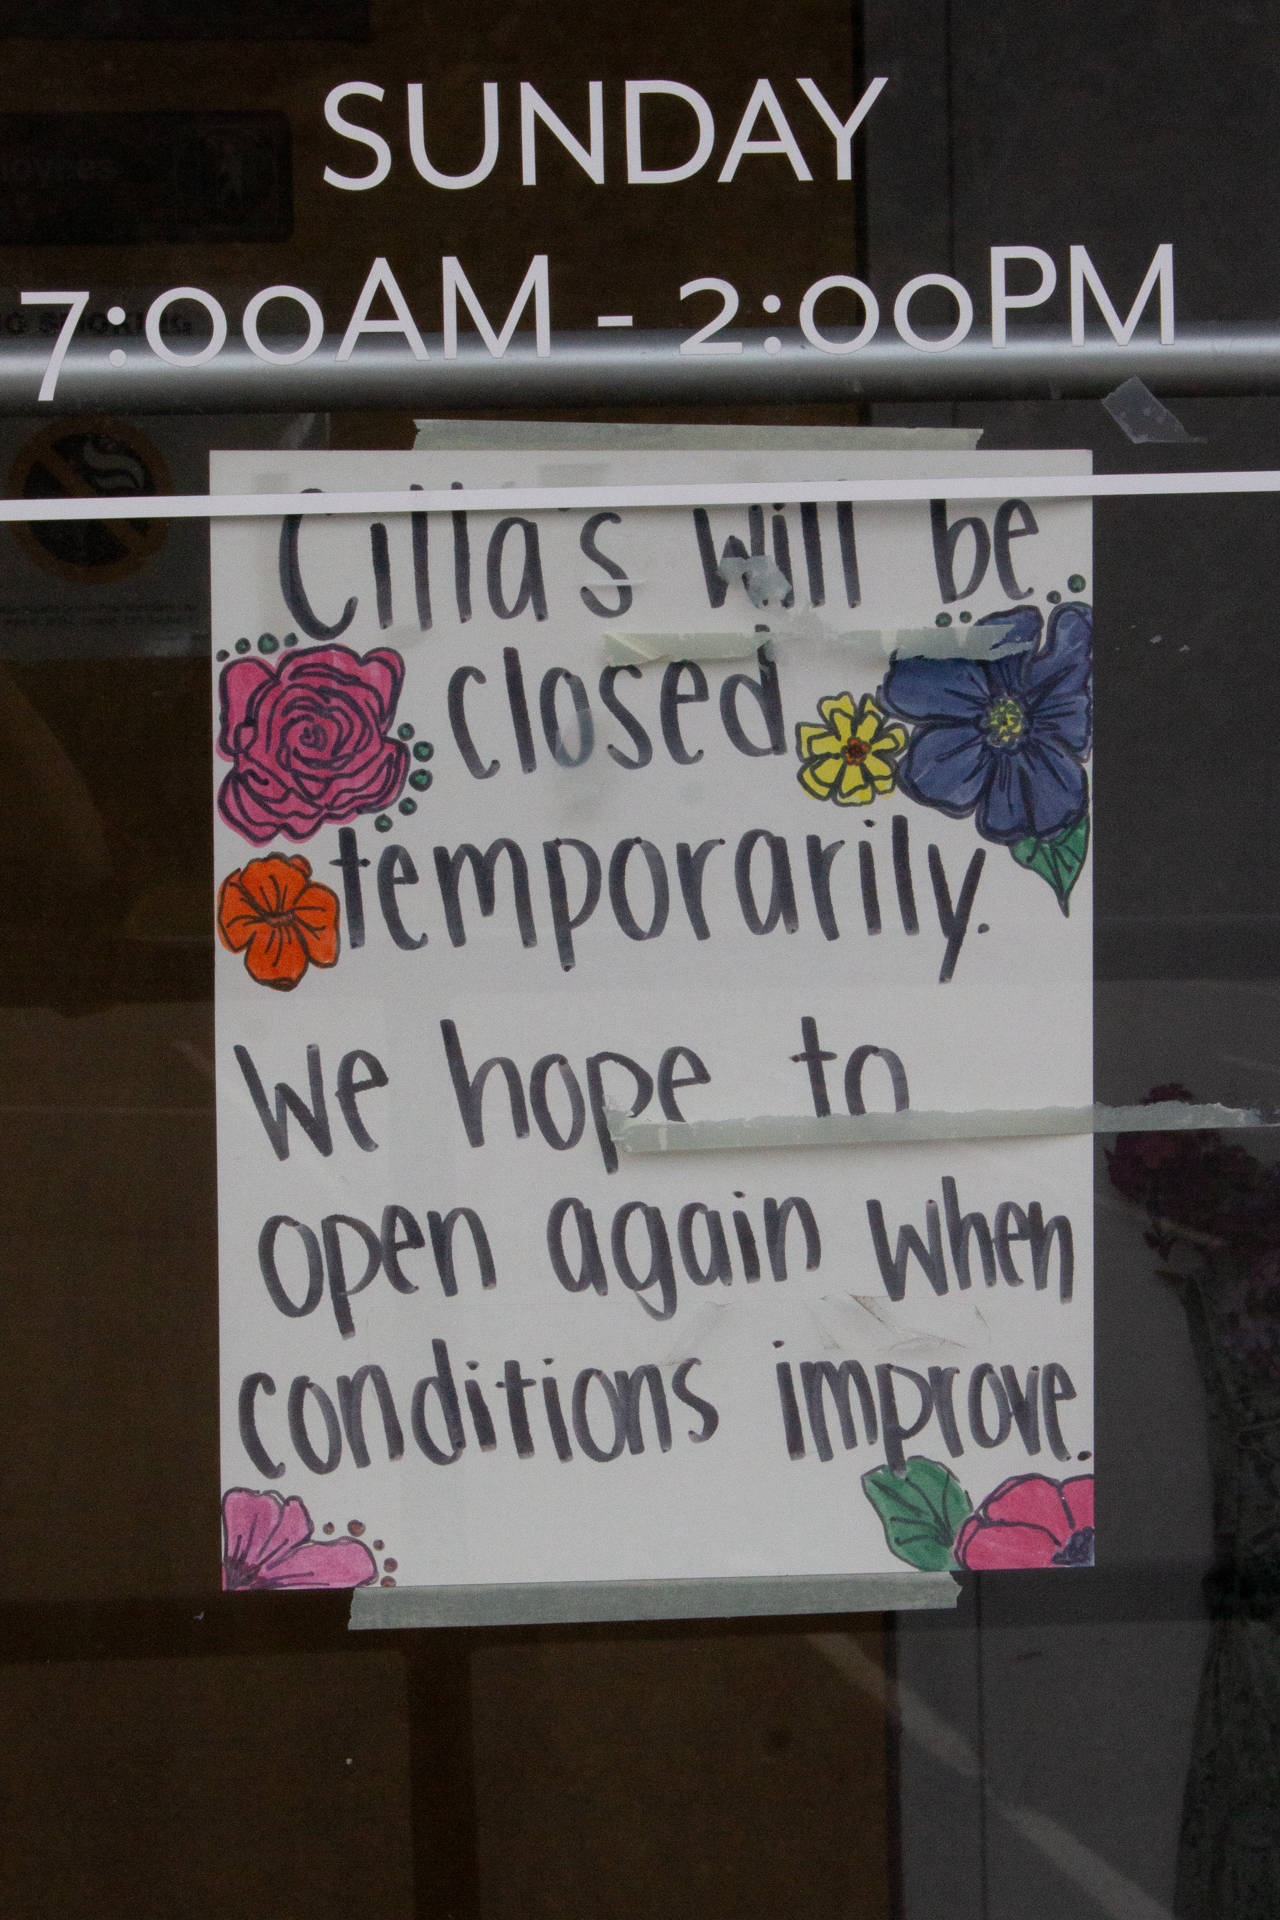 SUNDAY
7:00AM - 2:00PM
NO SMOKING
Cilla's will be
closed
temporarily.
We hope to
open again when
conditions improve.